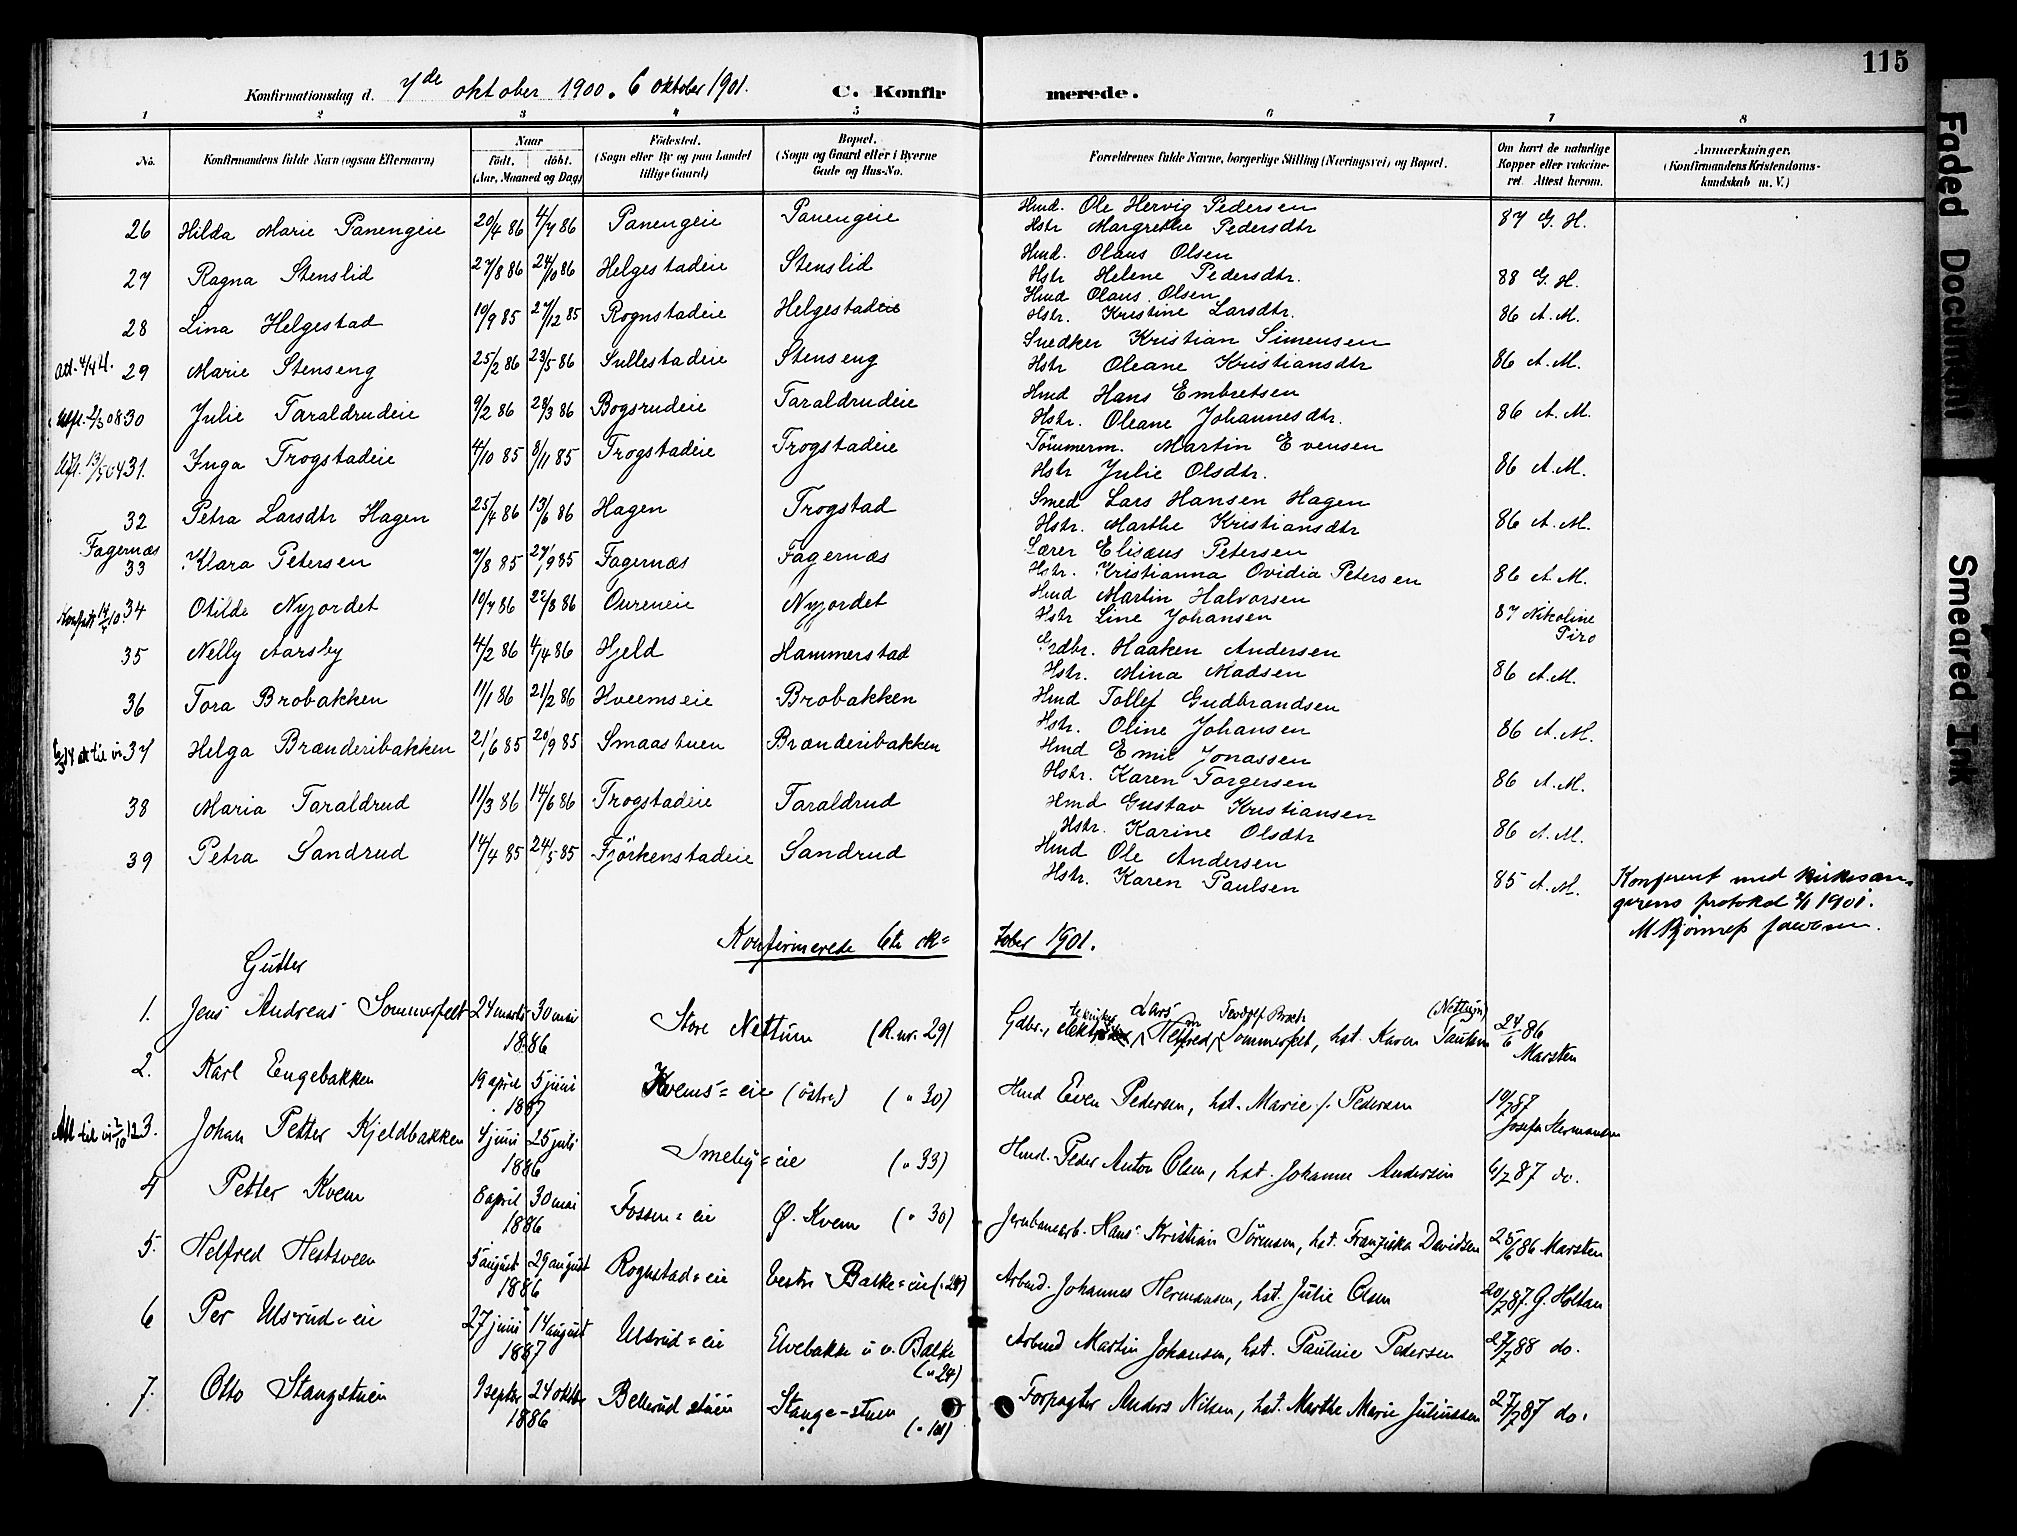 115
Konfirmationsdag d. 7de oktober 1900. 6 oktober 1901.
C. Konfirmerede.
1 2 3 4 5 6 7 8
No. Konfirmandens fulde Navn (ogsaa Efternavn) Naar født. døbt. (Aar, Maaned og Dag) Fødested. (Sogn eller By og paa Landet tillige Gaard) Bopæl. (Sogn og Gaard eller i Byerne Gade og Hus-No. Forældrenes fulde Navne, borgerlige Stilling (Næringsvei) og Bopæl. Om havt de naturlige Kopper eller vaccineret. Attest herom. Anmærkninger. (Konfirmandens Kristendomskundskab m. V.)
26 Hilda Marie Panengeie 20/4 86 4/7 86 Panengeie Panengeie Hmd. Ole Hervig Pedersen
Hstr Margrethe Pedersdtr 87 G. H.
27 Ragna Stenslid 27/8 86 24/10 86 Helgestadeie Stenslid Hmd. Olaus Olsen
Hstr Helene Pedersdtr. 88 G. H.
28 Lina Helgestad 10/9 85 27/12 85 Rognstadeie Helgestadeie Hmd Olaus Olsen
Hstr. Kristine Larsdtr. 86 A. M.
29 Marie Stenseng 25/2 86 23/5 86 Sullestadeie Stenseng Snedker Kristian Simensen
Hstr Oleane Kristiansdtr 86 A. M.
30 Julie Taraldrudeie 9/2 86 28/3 86 Bogsrudeie Taraldrudeie Hmd Hans Embretsen
Hstr. Oleane Johannesdtr. 86 A. M.
31. Inga Trogstadeie 4/10 85 8/11 85 Trogstadeie Trogstadeie Tömmerm. Martin Evensen
Hstr Julie Olsdtr. 86 A. M.
32 Petra Larsdtr Hagen 25/4 86 13/6 86 Hagen Trogstad Smed Lars Hansen Hagen
Hstr. Marthe Kristiansdtr 86 A. M.
Fagernæs
33 Klara Petersen 7/8 85 27/9 85 Fagernæs Fagernæs Lærer Elisæus Petersen
Hstr. Kristianna Ovidia Petersen 86 A. M.
34 Otilde Nyjordet 10/7 86 22/8 86 Oureneie Nyjordet Hmd Martin Halvorsen
Hstr Line Johansen 87 Nikoline Piro
35 Nelly Aarsby 4/2 86 4/4 86 Hjeld Hammerstad Grdbr. Haaken Andersen
Hstr. Mina Madsen 86 A. M.
36 Tora Brobakken 11/1 86 21/2 86 Hveemseie Brobakken Hmd Tollef Gudbrandsen
Hstr. Oline Johansen 86 A. M.
37 Helga Brænderibakken 21/6 85 20/9 85 Smaastuen Brænderibakken Hmd Emil Jonassen
Hstr. Karen Torgersen 86 A. M.
38 Maria Taraldrud 11/3 86 14/6 86 Trogstadeie Taraldrud Hmd Gustav Kristiansen
Hstr. Karine Olsdtr 86 A. M.
39 Petra Sandrud 14/4 85 24/5 85 Fjörkenstadeie Sandrud Hmd Ole Andersen
Hstr. Karen Paulsen 85 A. M.
Konferert med kirkesangerens protokol 1901.
Konfirmerede 6te oktober 1901.
Gutter
1. Jens Andreas Sommerfelt 24 marts 30 mai 1886 Store Nettum (R. nr. 29) Gdbr., elektro Helfred Sommerfelt, hst. Karen Paulsen (Nettum) 24/6 86 Marsten
2. Karl Engebakken 19 april 5 juni 1887 Kvems-eie (östre) (" 30) Hmd Even Pedersen, hst. Marie Pedersen 19/7 87 Josefa Hermansen
3. Johan Petter Kjeldbakken 4 juni 25 juli 1886 Smeby-eie (" 33) Hmd. Peder Anton Olsen, hst. Johanne Andersen 6/7 87 do.
4 Petter Kvem 8 april 30 mai 1886 Fossen-eie Ø. Kvem (" 30) Jernbanearb. Hans Kristian Sörensen, hst. Franziska Davidsen 25/6 86 Marsten
5. Helfred Hestsveen 5 august 29 august 1886 Rognstad-eie Vestre Balke-eie (" 29) Arbmd. Johannes Hermansen, hst. Julie Olsen 20/7 87. G. Holtan
6 Per Ulsrud-eie 27 juni 14 august 1887 Ulsrud-eie Elvebakke u. v. Balke (" 29) Arbmd Martin Johansen, hst. Pauline Pedersen 27/7 88 do.
7. Otto Stangstuen 9 septbr 24 oktbr 1886 Bellerudstuen Stange-stuen (" 101) Forpagter Anders Nilsen, hst. Marthe Marie Juliussen 27/7 87 do.
Faded Document
Smeared Ink